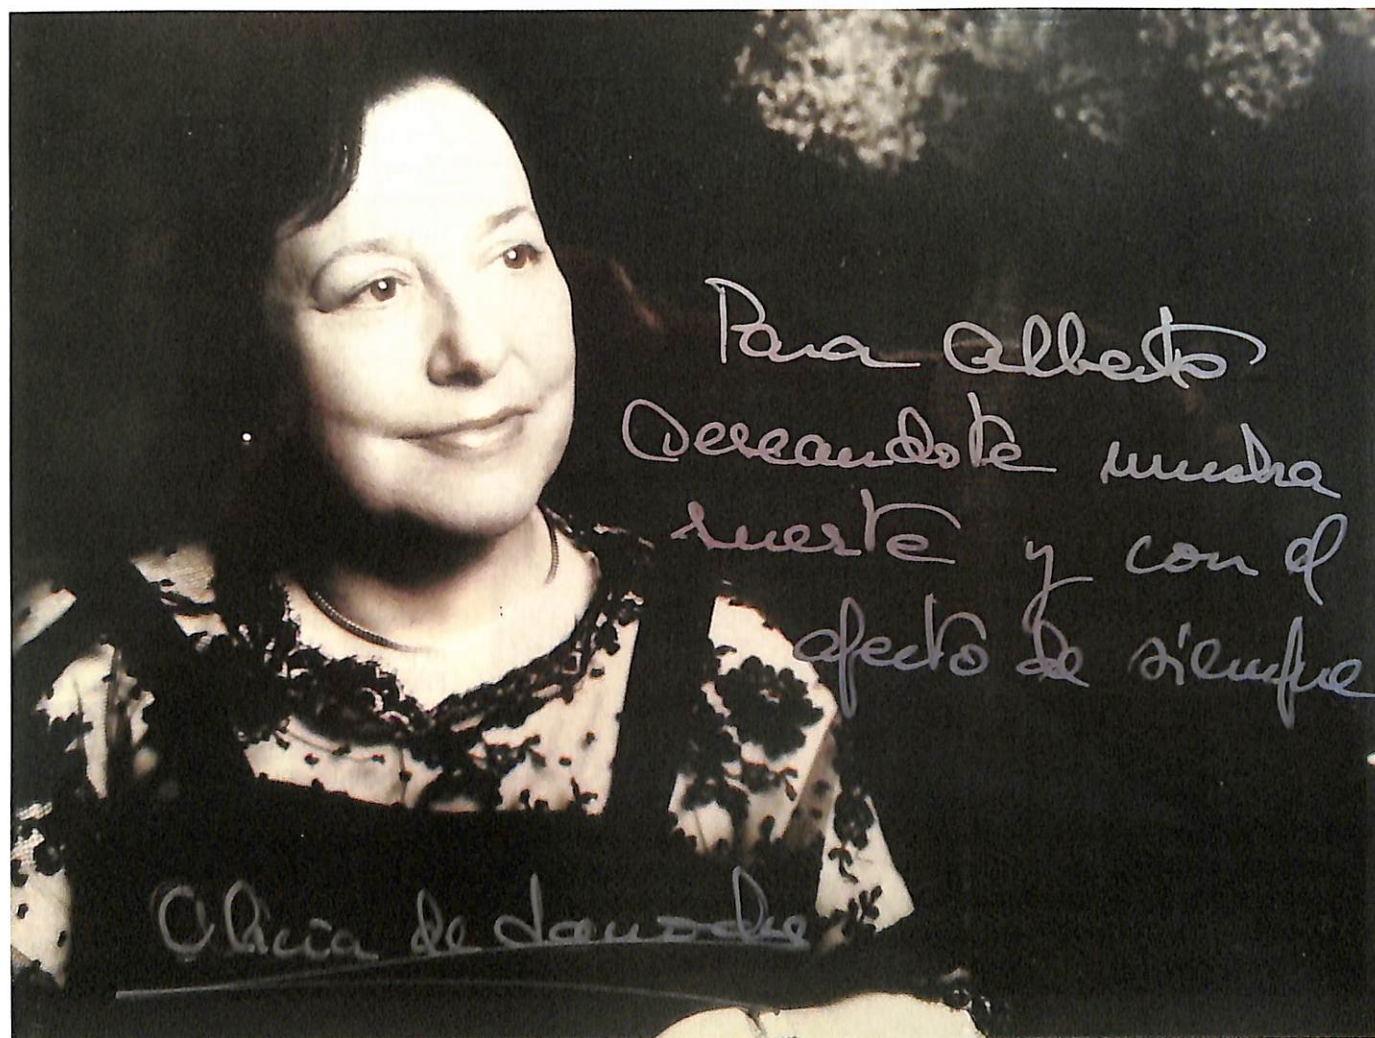 Para Alberto
Deseandote mucha
suerte y con el
afecto de siempre
Alicia de Larrocha